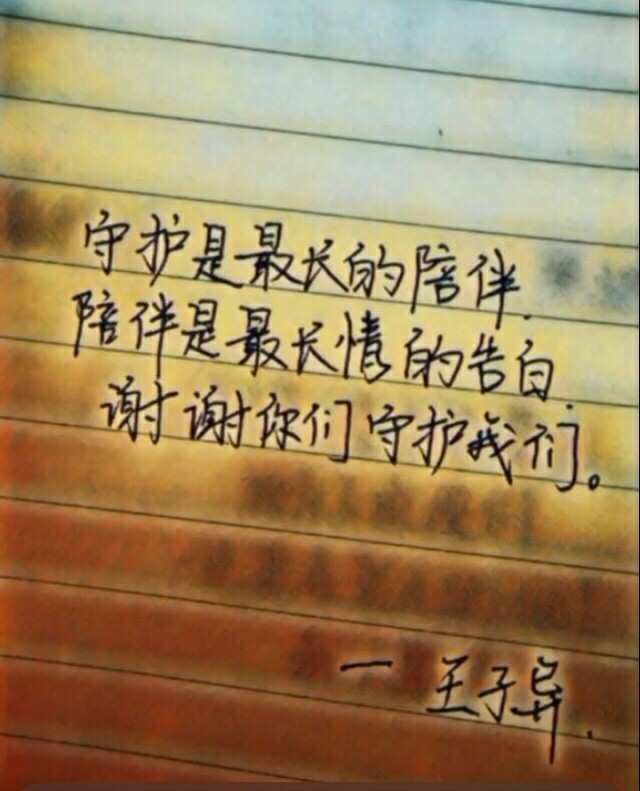 守护是最长的陪伴.
陪伴是最长情的告白.
谢谢你们守护我们。
一王子异.